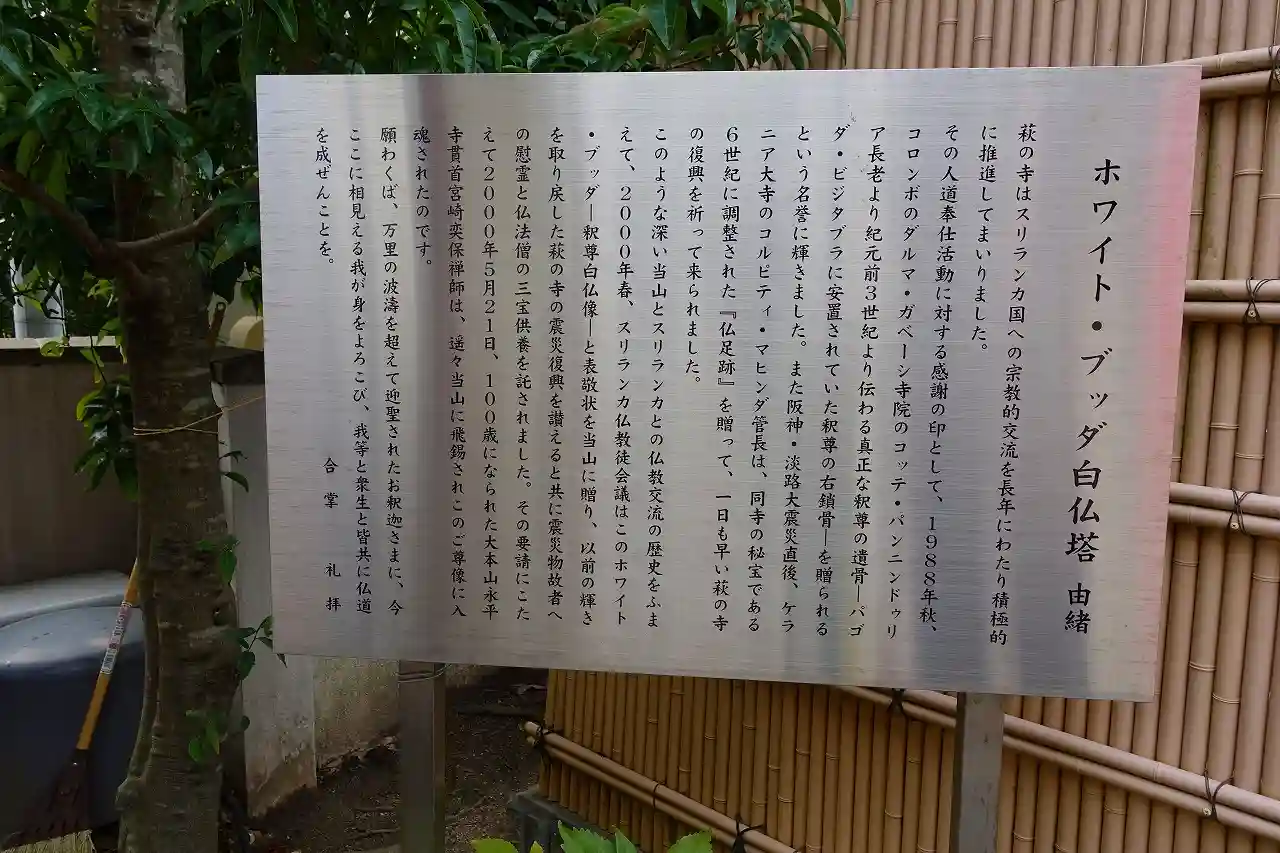 ホワイト・ブッダ白仏塔 由緒
萩の寺はスリランカ国への宗教的交流を長年にわたり積極的
に推進してまいりました。
その人道奉仕活動に対する感謝の印として、1988年秋、
コロンボのダルマ・ガベーシ寺院のコッテ・パンニンドゥリ
ア長老より紀元前3世紀より伝わる真正な釈尊の遺骨―パゴ
ダ・ビジタプラに安置されていた釈尊の右鎖骨―を贈られる
という名誉に輝きました。また阪神・淡路大震災直後、ケラ
ニア大寺のコルピティ・マヒンダ管長は、同寺の秘宝である
6世紀に調整された『仏足跡』を贈って、一日も早い萩の寺
の復興を祈って来られました。
このような深い当山とスリランカとの仏教交流の歴史をふま
えて、2000年春、スリランカ仏教徒会議はこのホワイト
・ブッダ―釈尊白仏像―と表敬状を当山に贈り、以前の輝さ
を取り戻した萩の寺の震災復興を讃えると共に震災物故者へ
の慰霊と仏法僧の三宝供養を託されました。その要請にこた
えて2000年5月21日、100歳になられた大本山永平
寺貫首宮崎奕保禅師は、遥々当山に飛錫されこのご尊像に入
魂されたのです。
願わくば、万里の波濤を超えて迎聖されたお釈迦さまに、今
ここに相見える我が身をよろこび、我等と衆生と皆共に仏道
を成ぜんことを。
合掌 礼拝